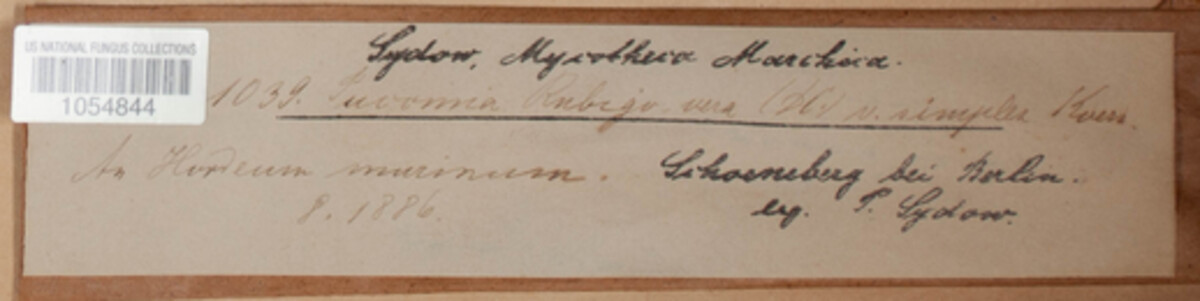 US NATIONAL FUNGUS COLLECTIONS
1054844
Sydow, Mycotheca Marchica.
1039. Puccinia Rubigo vera (DC) v. simplex Koern.
An Hordeum murinum. Schoeneberg bei Berlin.
8. 1886. leg. P. Sydow.